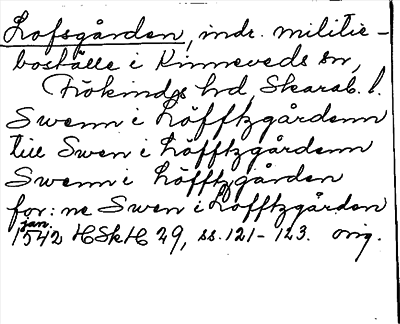 Lofsgården, indr. militie-
boställe i Kinneveds sn,
Frökinds hd, Skarab. l.
Swenn i Löfftzgårdenn
till Swen i Löfftzgårdenn
Swenn i Löfftzgården
for: ne Swen i Löfftzgården
jan.
1542 HSkH 29, ss. 121-123. orig.